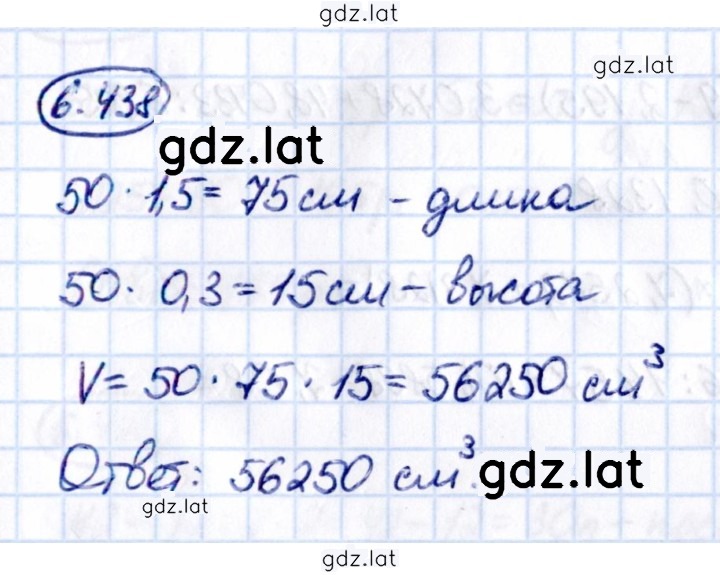 gdz.lat
gdz.lat
6.438
gdz.lat
50 · 1,5 = 75 см - длина
50 · 0,3 = 15 см - высота
V = 50 · 75 · 15 = 56250 см³
Ответ: 56250 см³.
gdz.lat
gdz.lat
gdz.lat